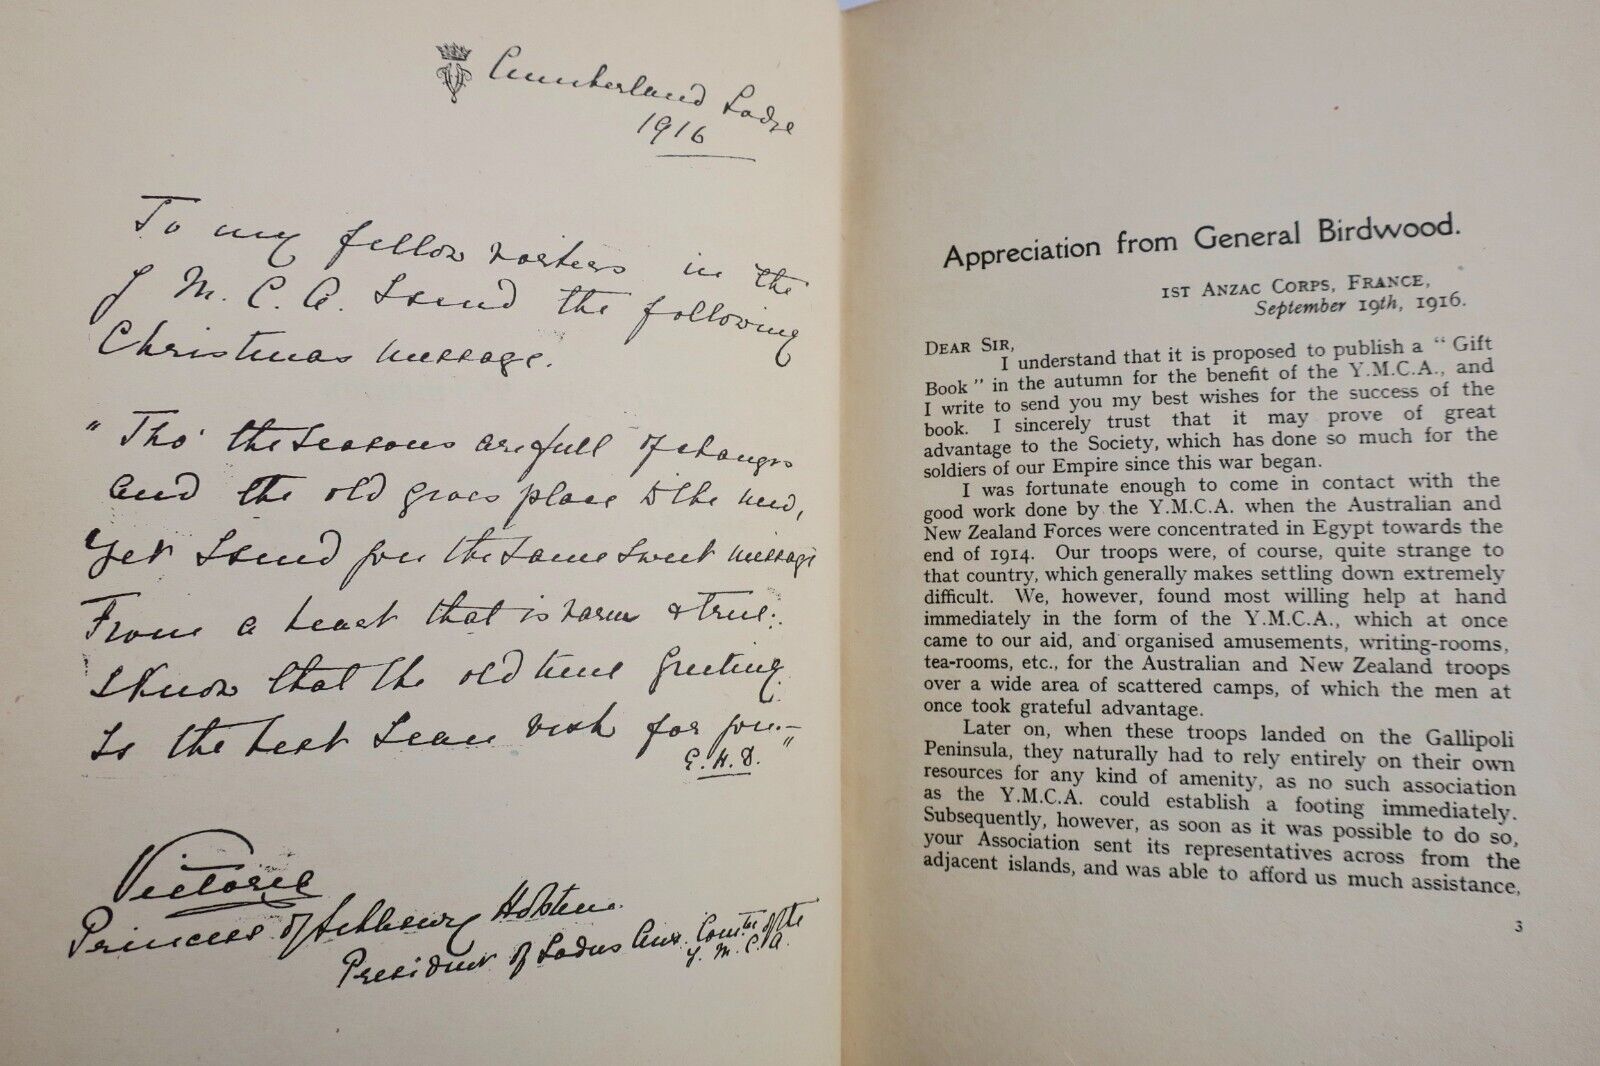 Cumberland Lodge
1916
To my fellow workers in the
Y M. C. A. I send the following
Christmas message.
"Tho' the seasons are full of changes
And the old gives place to the new,
Yet I send you the same sweet message
From a heart that is warm & true:
I know that the old time greeting
Is the best I can wish for you.—
E. H. D."
Victoria
Princess of Schleswig Holstein.
President of Ladies Aux. Comtee of the
Y. M. C. A.
Appreciation from General Birdwood.
1ST ANZAC CORPS, FRANCE,
September 19th, 1916.
DEAR SIR,
I understand that it is proposed to publish a "Gift
Book" in the autumn for the benefit of the Y.M.C.A., and
I write to send you my best wishes for the success of the
book. I sincerely trust that it may prove of great
advantage to the Society, which has done so much for the
soldiers of our Empire since this war began.
I was fortunate enough to come in contact with the
good work done by the Y.M.C.A. when the Australian and
New Zealand Forces were concentrated in Egypt towards the
end of 1914. Our troops were, of course, quite strange to
that country, which generally makes settling down extremely
difficult. We, however, found most willing help at hand
immediately in the form of the Y.M.C.A., which at once
came to our aid, and organised amusements, writing-rooms,
tea-rooms, etc., for the Australian and New Zealand troops
over a wide area of scattered camps, of which the men at
once took grateful advantage.
Later on, when these troops landed on the Gallipoli
Peninsula, they naturally had to rely entirely on their own
resources for any kind of amenity, as no such association
as the Y.M.C.A. could establish a footing immediately.
Subsequently, however, as soon as it was possible to do so,
your Association sent its representatives across from the
adjacent islands, and was able to afford us much assistance,
3